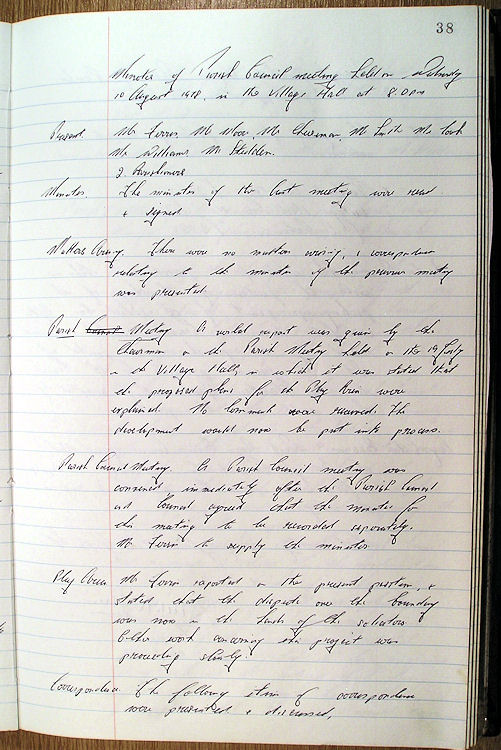 38
Minutes of Parish Council meeting held on
10 August 1978, in the Village Hall at 8.0pm
Present Mr Mr Moore, Mr Chairman, Mr Smith Mr
Mr Williams, Mr
2 Parishioners
Minutes. The minutes of the last meeting were read
+ signed
Matters Arising. There were no matters arising, & correspondence
relating to the minutes of the previous meeting
was presented.
Parish Meeting A verbal report was given by the
Chairman on the Parish Meeting held on the 19 July
in the Village Hall, in which it was stated that
the proposed plans for the Play Area were
explained. No comments were received. The
development would now be put into process.
Parish Council Meeting. A Parish Council meeting was
convened immediately after the Parish Council
and Council agreed that the minutes for
this meeting to be recorded separately.
Mr to supply the minutes
Play Area Mr reported on the present position, +
stated that the dispute over the boundary
was now in the hands of the solicitors
Other work concerning the project was
proceeding slowly.
Correspondence The following items of correspondence
were presented & discussed,